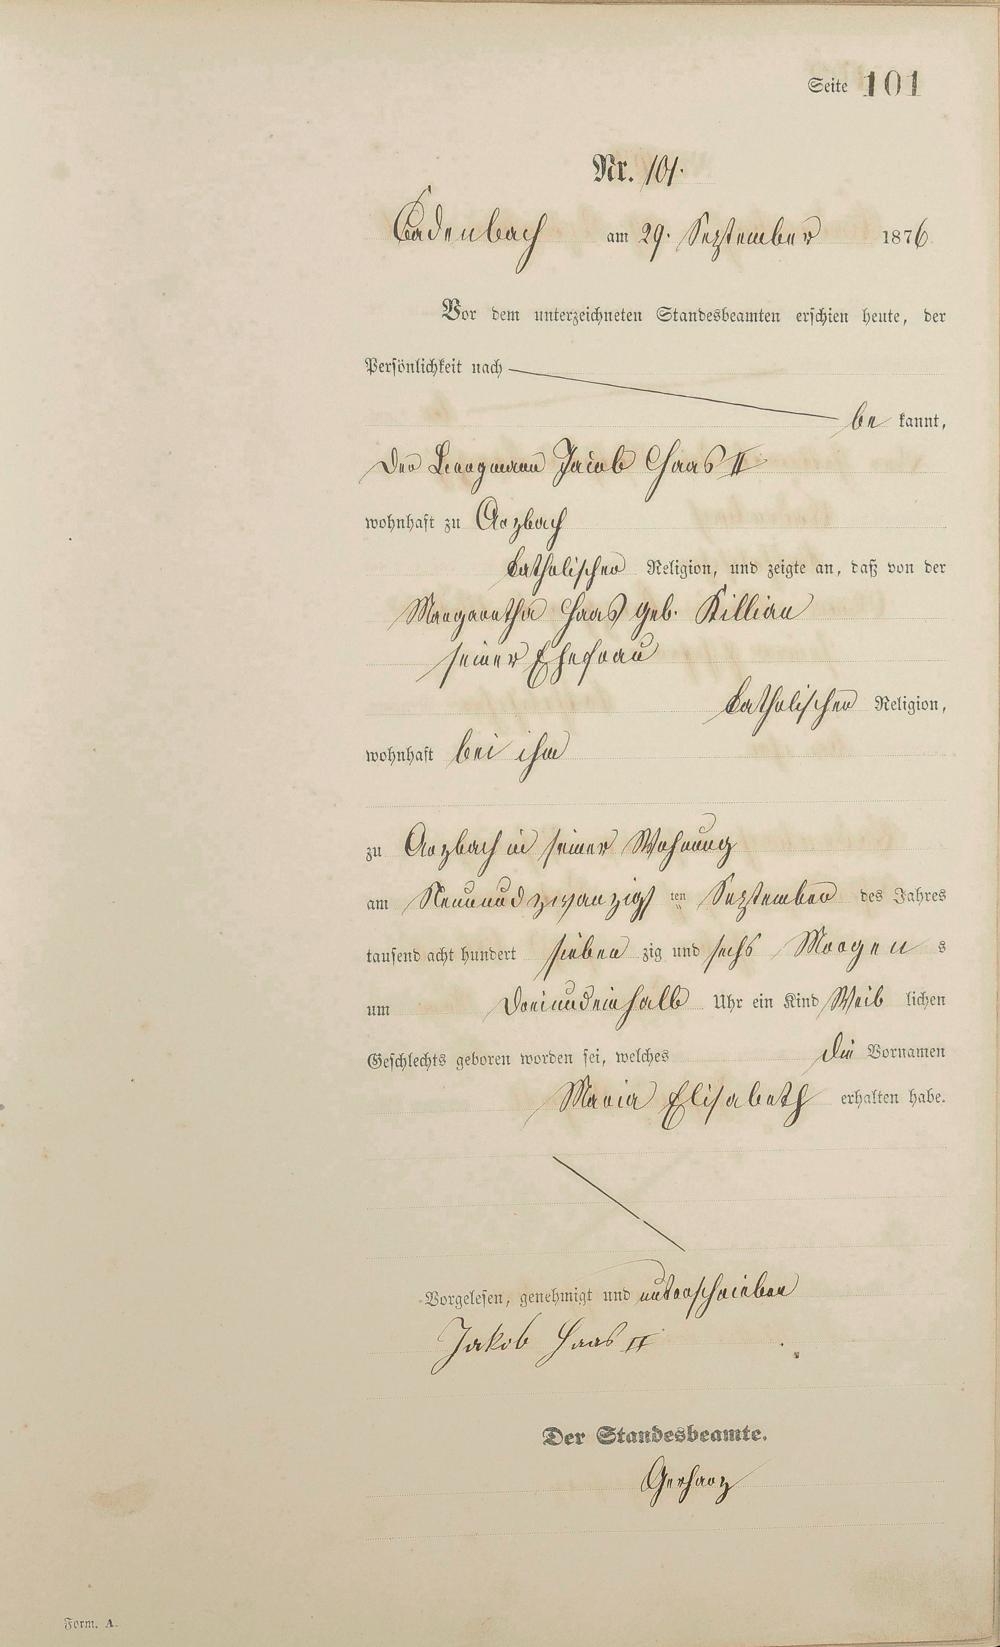 Seite 101
Nr. 101.
Cadenbach am 29. September 1876
Vor dem unterzeichneten Standesbeamten erschien heute, der
Persönlichkeit nach
be kannt,
der Bergmann Jacob Haas II
wohnhaft zu Arzbach
katholischer Religion, und zeigte an, daß von der
Margaretha Haas geb. Killian
seiner Ehefrau
katholischer Religion,
wohnhaft bei ihm
zu Arzbach in seiner Wohnung
am Neunundzwanzigs ten September des Jahres
tausend acht hundert sieben zig und sechs Morgen s
um Dreiundeinhalb Uhr ein Kind Weib lichen
Geschlechts geboren worden sei, welches die Vornamen
Maria Elisabeth erhalten habe.
Vorgelesen, genehmigt und unterschrieben
Jakob Haas II
Der Standesbeamte.
Gerharz
Form. A.